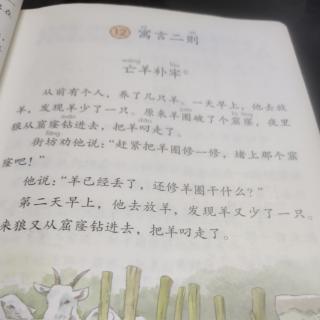 12 寓言二则
wáng láo
亡羊补牢
从前有个人，养了几只羊。一天早上，他去放
羊，发现羊少了一只。原来羊圈破了个窟窿，夜里
狼从窟窿钻进去，把羊叼走了。
街坊劝他说：“赶紧把羊圈修一修，堵上那个窟
窿吧！”
他说：“羊已经丢了，还修羊圈干什么？”
第二天早上，他去放羊，发现羊又少了一只。
来狼又从窟窿钻进去，把羊叼走了。